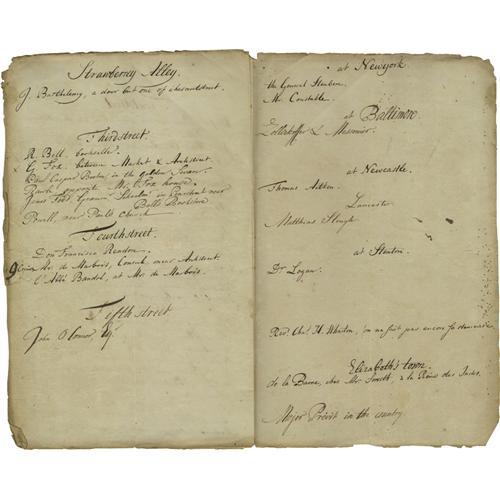 Strawberry Alley.
J. Barthelemy, a door but one of chesnutstreet.
Thirdstreet
R. Bell, bookseller.
G. Fox, between Market & Archstreet
Caspar in the golden Swan.
opposite Mr. Fox house.
Jones in near
Bell's Bookstore
Powell, near Paul's Church
Fourthstreet.
Don Francisco Rendon.
Mr. de Marbois, Consul, near Archstreet
L'Abbé Bandol, at Mr. de Marbois.
Fifth street
John O'Connor, Esq.
at Newyork
the General Steuben.
Mr. Constable.
at Baltimore
Zollickoffer & Messonier.
at Newcastle.
Thomas Aitken.
Lancaster
Matthias Slough
at Stanton.
Dr. Logan.
Revd. Chs. H. Wharton, on ne sait pas encore sa
Elizabeth's town.
de la chez Mr. Smith, à la Reine des Indes.
Major Prevot in the country